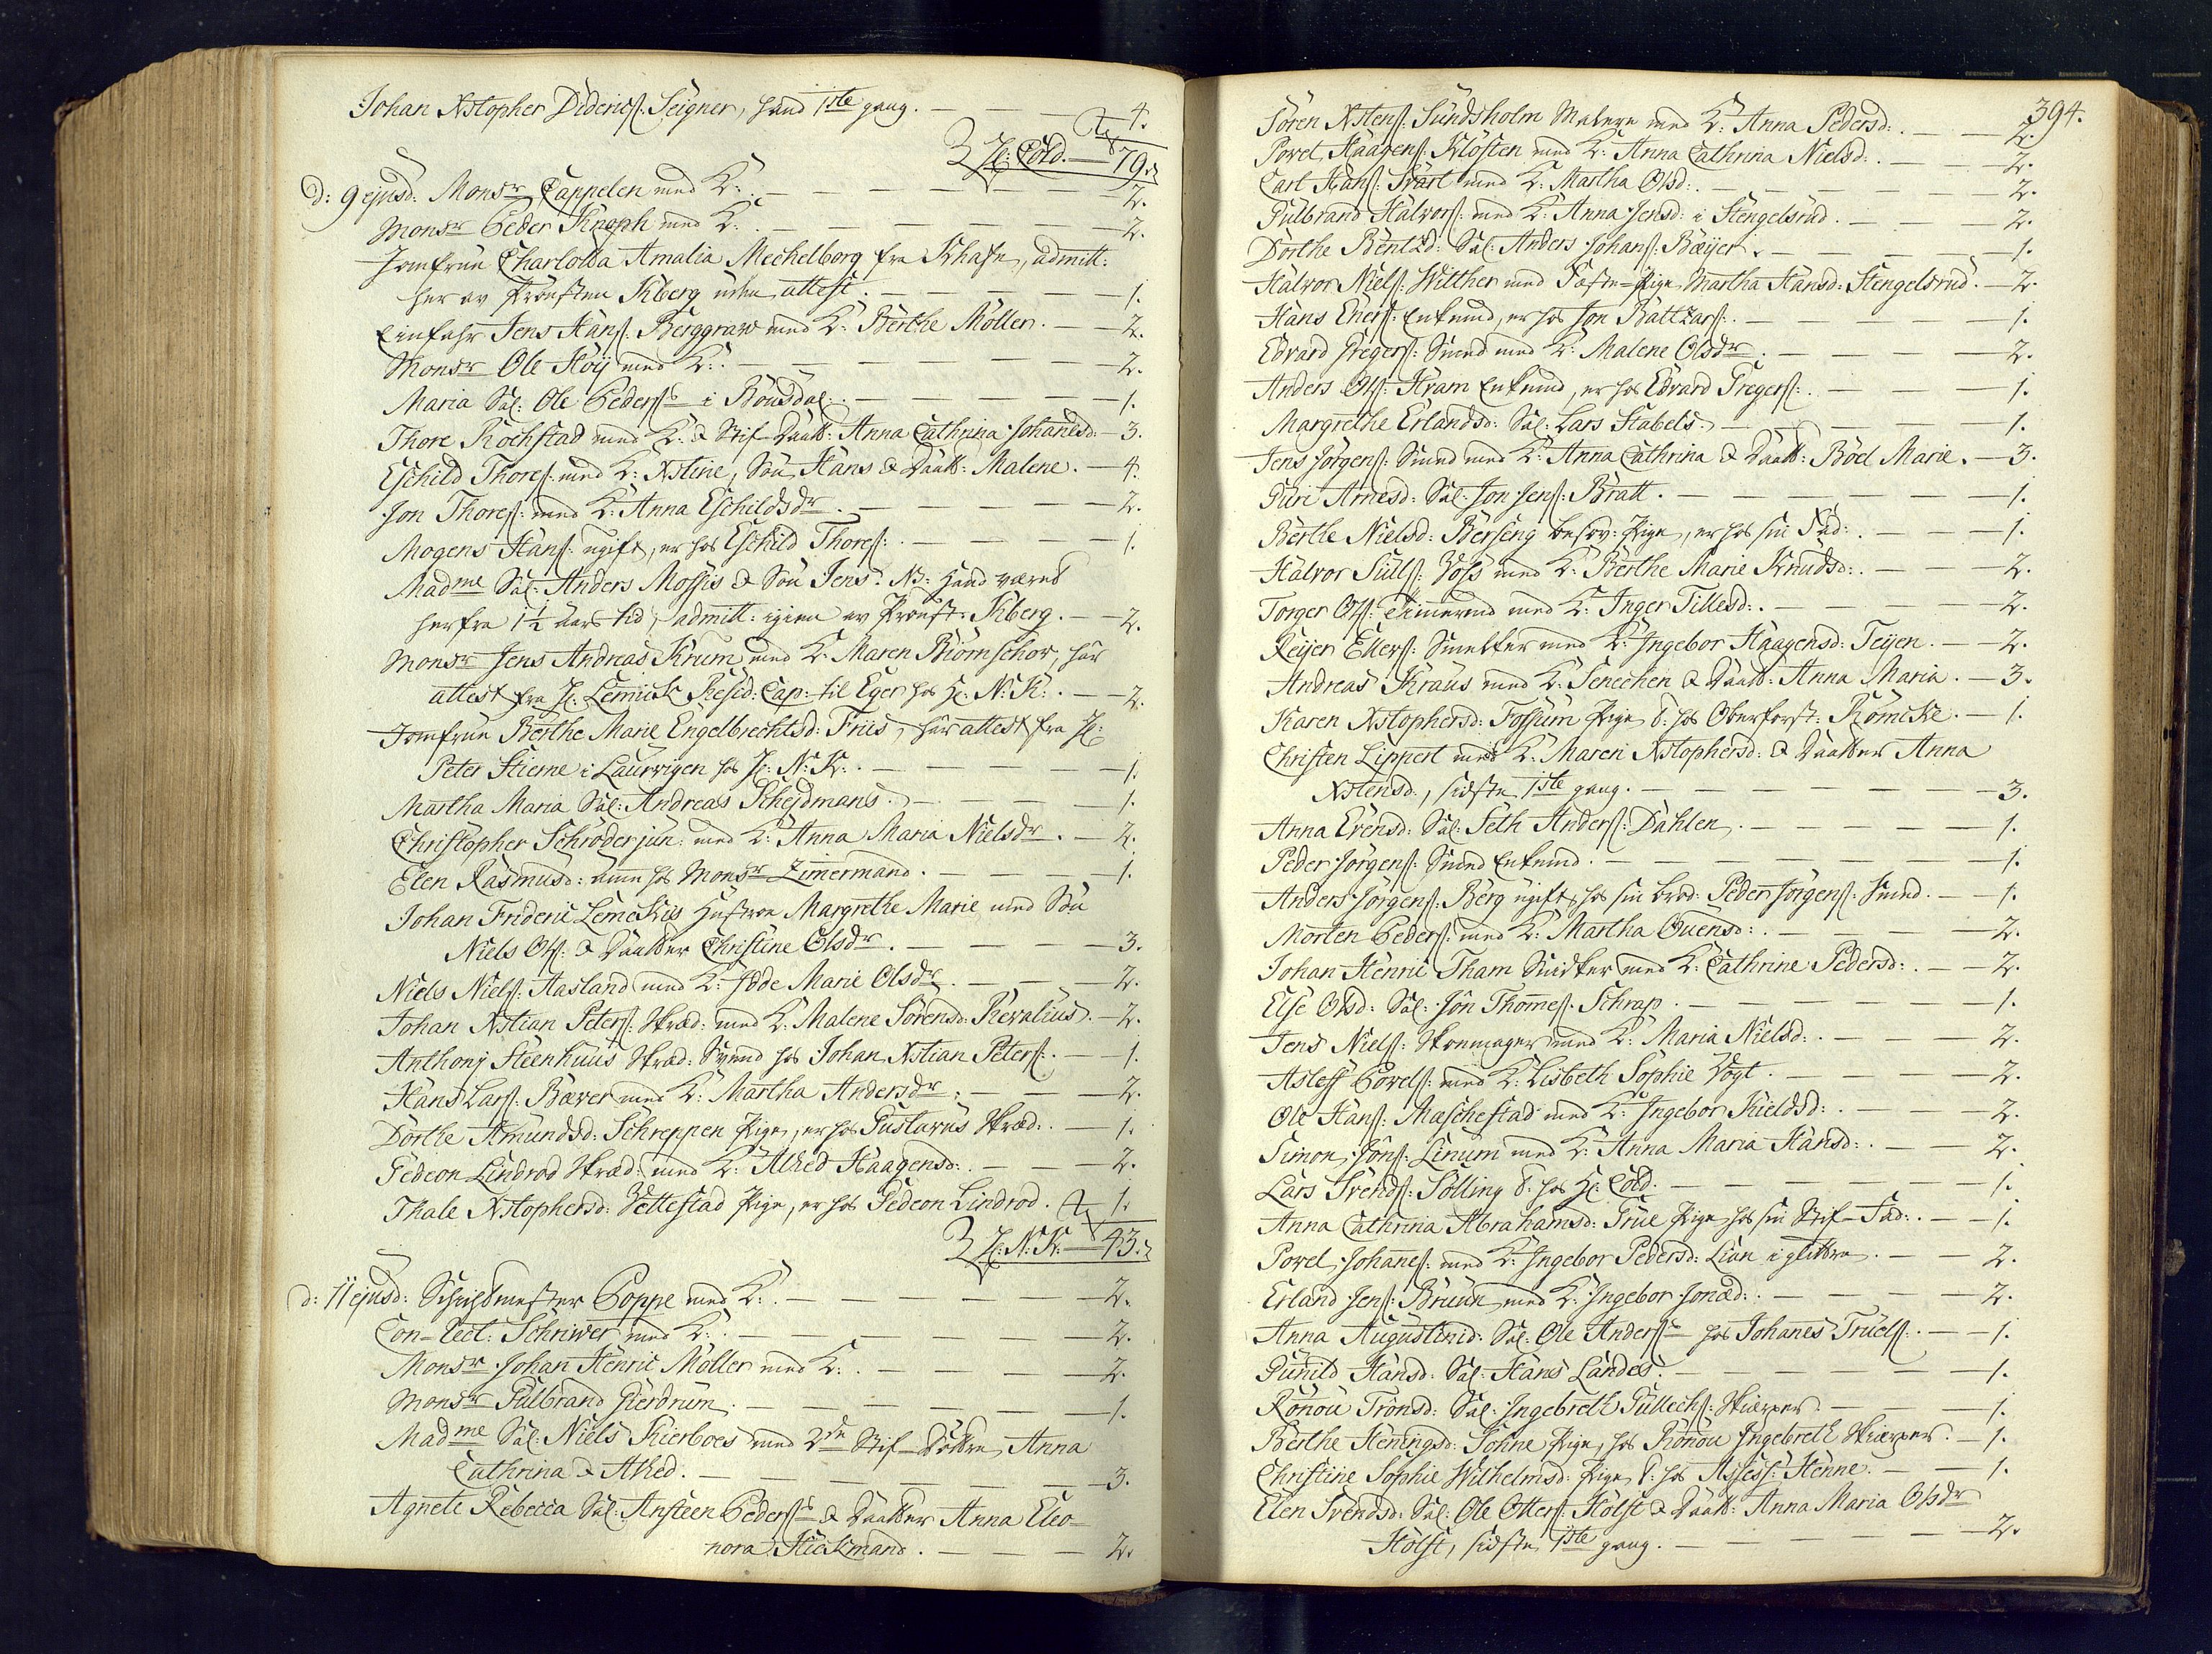 Johan Xstopher Diderics: Seigner, hand 1ste gang. — 4.
H: Cold. — 79.
d: 9 ejusd: Monsr Cappelen med K: — 2.
Monsr Peder Knoph med K: — 2.
Jomfrue Charlotta Amalia Mechelborg fra Khafn, admitt:
her av Prousten Kberg uden attest. — 1.
Einfahr Jens Hans: Berggraw med K: Berthe Möller. — 2.
Monsr Ole Höij med K: — 2.
Maria Sal: Ole Peders: i Bonsdal: — 1.
Thore Rochstad med K: & Stif-Daatt: Anna Cathrina Johanesd: — 3.
Eschild Thores: med K: Xstine, Sön Hans & Daatt: Malene. — 4.
Jon Thores: med K: Anna Eschildsdr — 2.
Mogens Hans: ugift, er hos Eschild Thores: — 1.
Madme Sal: Anders Mossis & Sön Jens. NB: hand været
herfra 1½ aars tid, admitt: igien av Proust: Kberg. — 2.
Monsr Jens Andreas Krum med K: Maren Biömschor, har
attest fra H: Lemick Resid: Cap: til Eger hos H: N: K: — 2.
Jomfrue Berthe Marie Engelbrechtsd: Friis, har attest fra H:
Peter Stierne i Laurwigen hos H: N: K: — 1.
Martha Maria Sal: Andreas Scheidmans. — 1.
Christopher Schröder jun: med K: Anna Maria Nielsdr — 2.
Elen Rasmusd: amme hos Monsr Zimermand. — 1.
Johan Frideric Lemckes Hustroe Margrethe Marie med Sön
Niels Ols: & Daatter Christine Olsdr — 3.
Niels Niels: Aasland med K: Edde Marie Olsdr — 2.
Johan Xstian Peters: Skræd: med K: Malene Sörensd: Revalius. — 2.
Anthonj Steenhuus Skræd: Svend hos Johan Xstian Peters: — 1.
Hans Lars: Bæver med K: Martha Andersdr — 2.
Dorthe Amundsd: Schreppen Pige, er hos Gustavus Skræd: — 1.
Gedeon Lindrod Skræd: med K: Alhed Haagensd: — 2.
Thale Xstophersd: Vettestad Pige, er hos Gedeon Lindrod. 1.
H: N: K. — 43.
d: 11 ejusd: Schichtmester Poppe med K: — 2.
Con-Rect: Schriwer med K: — 2.
Monsr Johan Henric Möller med K: — 2.
Monsr Gulbrand Gierdrum. — 1.
Madme Sal: Niels Kierboes med 2de Stif-Döttre, Anna
Cathrina & Alhed. — 3.
Agnete Rebecca Sal: Ansteen Peders: & Daatter Anna Eleo-
nora Hickmand. — 2.
394.
Sören Xstens: Sundsholm Malere med K: Anna Pedersd: — 2.
Povel Haagens: Klösten med K: Anna Cathrina Nielsd: — 2.
Carl Hans: Svart med K: Martha Olsd: — 2.
Gulbrand Halvors: med K: Anna Jensd: i Stengelsrud. — 2.
Dorthe Bentzd: Sal: Anders Johans: Bæijer. — 1.
Halvor Niels: Witther med Fæste-Pige Martha Hansd: Stengelsrud. — 2.
Hans Eners: Enkemd, er hos Jon Baltzars: — 1.
Edvard Gregers: Smed med K: Malene Olsdr — 2.
Anders Ols: Hram Enkemd, er hos Edvard Gregers: — 1.
Margrethe Erlandsd: Sal: Lars Stabels. — 1.
Jens Jörgens: Smed med K: Anna Cathrina & Daatt: Böel Marie. — 3.
Guri Arnesd: Sal: Jon Jens: Bratt. — 1.
Berthe Nielsd: Berseng besov: Pige, er hos sin Fad: — 1.
Halvor Juuls: Voss med K: Berthe Marie Knudsd: — 2.
Torger Ols: Temmermd med K: Inger Tillesd: — 2.
Reijer Ellers: Smelter med K: Ingebor Haagensd: Teijen. — 2.
Andreas Kraus med K: Lenechen & Daatt: Anna Maria. — 3.
Karen Xstophersd: Fossum Pige T: hos Oberforst: Römcke. — 1.
Christen Lippert med K: Maren Xstophersd: & Daatter Anna
Xstensd:, sidste 1ste gang. — 3.
Anna Evensd: Sal: Seth Anders: Dahlen. — 1.
Peder Jörgens: Smed Enkemd. — 1.
Anders Jörgens: Berg ugift, hos sin brod: Peder Jörgens: Smed. — 1.
Morten Peders: med K: Martha Ouensd: — 2.
Johan Henric Tham Snidker med K: Cathrine Pedersd: — 2.
Else Olsd: Sal: Jon Thomes: Schrap. — 1.
Jens Niels: Skoemager med K: Maria Nielsd: — 2.
Aslef Povels: med K: Lisbeth Sophie Vogt. — 2.
Ole Hans: Maschestad med K: Ingebor Kieldsd: — 2.
Simon Jons: Linum med K: Anna Maria Hansd: — 2.
Lars Svends: Solling T: hos H: Cold. — 1.
Anna Cathrina Abrahamsd: True Pige hos sin Stif-Fad: — 1.
Povel Johanes: med K: Ingebor Pedersd: Lian i glittre. — 2.
Erland Jens: Bruun med K: Ingebor Jonæd: — 2.
Anna Augustinid: Sal: Ole Anders: hos Johanes Truels: — 1.
Gunild Hansd: Sal: Hans Landes. — 1.
Rönou Tronsd: Sal: Ingebreth Gullechs: Skierpes. — 1.
Berthe Heningsd: Johne Pige, hos Rönou Ingebreth Skierpes. — 1.
Christine Sophie Wilhelmsd: Pige T: hos Assess: Henne. — 1.
Elen Svendsd: Sal: Ole Otters: Holst & Daatt: Anna Maria Olsdr
Holst, sidste 1ste gang. — 2.